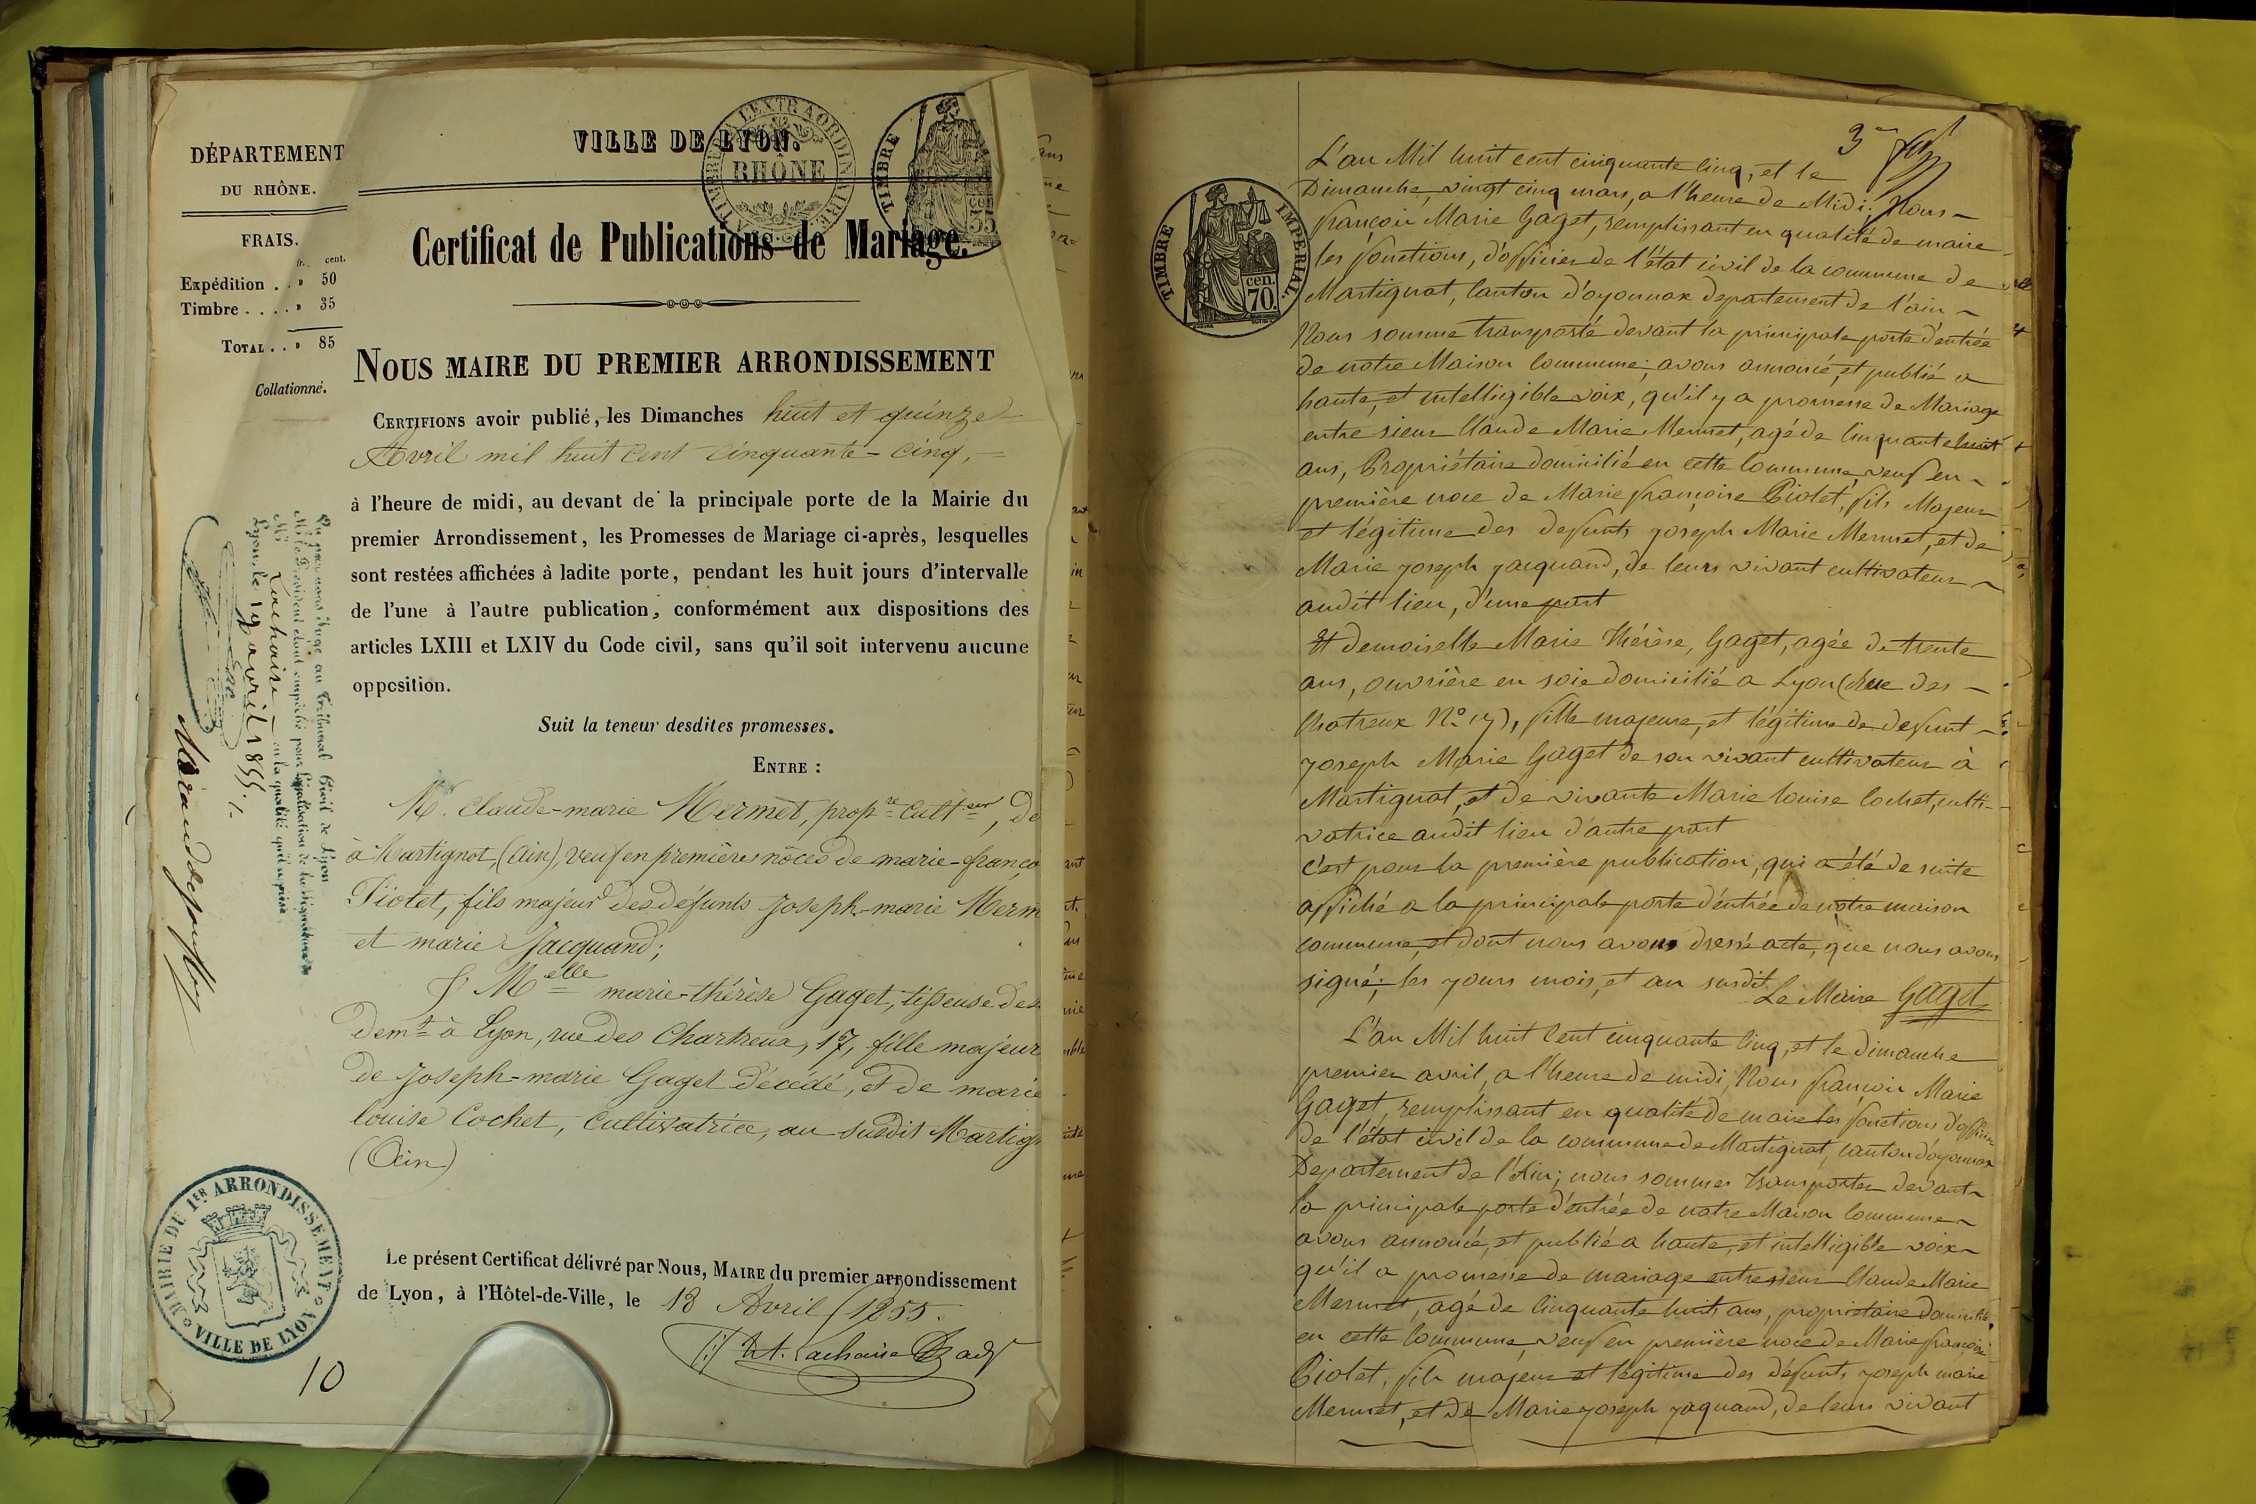 DÉPARTEMENT
DU RHÔNE.
FRAIS.
fr. cent.
Expédition . . » 50
Timbre . . . . » 35
TOTAL . . » 85
Collationné.
VILLE DE LYON.
TIMBRE A L'EXTRAORDINAIRE
RHÔNE
TIMBRE
cen.
35
Certificat de Publications de Mariage.
NOUS MAIRE DU PREMIER ARRONDISSEMENT
CERTIFIONS avoir publié, les Dimanches huit et quinze
Avril mil huit cent cinquante-cinq,
à l'heure de midi, au devant de la principale porte de la Mairie du
premier Arrondissement, les Promesses de Mariage ci-après, lesquelles
sont restées affichées à ladite porte, pendant les huit jours d'intervalle
de l'une à l'autre publication, conformément aux dispositions des
articles LXIII et LXIV du Code civil, sans qu'il soit intervenu aucune
opposition.
Suit la teneur desdites promesses.
ENTRE :
M. Claude-marie Mermet, propre. Culteur, de
à Martignot, (Ain), veuf en premières nôces de marie-franço
Piotet, fils majeur des défunts Joseph-marie Merm
et marie Jacquand;
& Melle marie-thérèse Gaget, tisseuse de
demt à Lyon, rue des Chartreux, 17, fille majeur
de Joseph-marie Gaget décédé, et de marie
louise Cochet, Cultivatrice, au susdit Martig
(Ain)
Le présent Certificat délivré par Nous, MAIRE du premier arrondissement
de Lyon, à l'Hôtel-de-Ville, le 18 Avril 1855.
MAIRIE DU 1ER ARRONDISSEMENT
VILLE DE LYON
10
Vu par nous Juge au Tribunal Civil de Lyon
Mr le Président étant empêché pour légalisation de la signature de
Mr Lachaise en la qualité qu'il a prise
Lyon, le 19 avril 1855.
3
TIMBRE IMPERIAL.
cen.
70.
L'an Mil huit cent cinquante cinq, et le
Dimanche, vingt cinq mars, a l'heure de Midi; Nous
françois Marie Gaget, remplissant en qualité de maire
les fonctions, d'officier de l'état civil de la commune de
Martignat, Canton d'oyonnax departement de l'ain
Nous somme transporté devant la principale porte d'entrée
de notre Maison Commune; avons annoncé, et publié a
haute, et intelligible voix, qu'il y a promesse de Mariage
entre sieur Claude Marie Mermet, agé de Cinquante huit
ans, Propriétaire domicilié en cette Commune, veuf en
première noce de Marie françoise Piolet, fils Majeur
et légitime des defunts joseph Marie Mermet, et de
Marie joseph jacquand, de leurs vivant cultivateur
audit lieu, d'une part
Et demoiselle Marie Thérèse, Gaget, agée de trente
ans, ouvrière en soie domicilié a Lyon (Rue des
Chatreux No 17), fille majeure, et légitime de defunt
joseph Marie Gaget de son vivant cultivateur à
Martignat, et de vivante Marie louise Cochet, culti-
vatrice audit lieu d'autre part
C'est pour la première publication, qui a été de suite
affiché a la principale porte d'entrée de notre maison
commune, et dont nous avons dressé acte, que nous avons
signé; les jours mois, et an susdit. Le Maire Gaget
L'an Mil huit Cent cinquante Cinq, et le dimanche
premier avril, a l'heure de midi, Nous françois Marie
Gaget, remplissant en qualité de maire les fonctions d'officier
de l'état civil de la commune de Martignat, canton d'oyonnax
Departement de l'Ain; nous sommes transporter devant
la principale porte d'entrée de notre Maison Commune
avons annoncé, et publié a haute, et intelligible voix
qu'il a promesse de mariage entre sieur Claude Marie
Mermet, agé de Cinquante huit ans, propriétaire domicilié
en cette Commune, veuf en première noce de Marie françoise
Piolet, fils majeur et légitime des défunts joseph marie
Mermet, et de Marie joseph jaquand, de leurs vivant